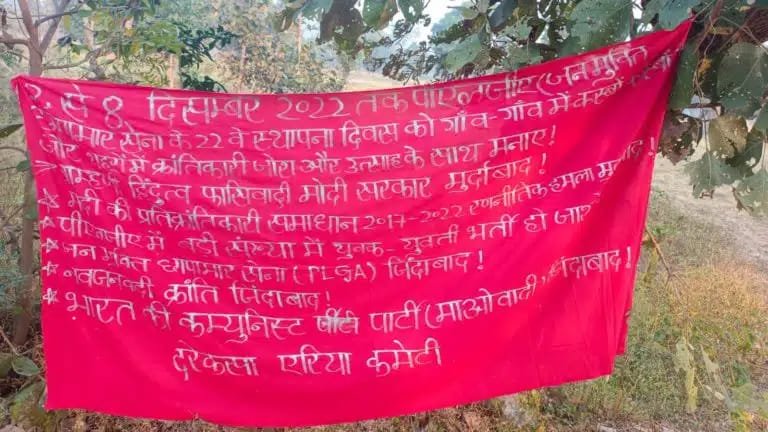 2 से 8 दिसम्बर 2022 तक पीएलजीए (जनमुक्ति
छापामार सेना के 22 वे स्थापना दिवस को गाँव-गाँव में कस्बों
और शहरों में क्रांतिकारी जोश और उत्साह के साथ मनाए!
हिंदुत्व फासिवादी मोदी सरकार मुर्दाबाद!
* मोदी की प्रतिक्रांतिकारी समाधान 2017-2022 रणनीतिक हमला
* पीएलजीए में बड़ी संख्या में युवक-युवती भर्ती हो
* जन मुक्ति छापामार सेना (PLGA) जिंदाबाद!
* नवजनवादी क्रांति जिंदाबाद!
* भारत की कम्युनिस्ट पार्टी (माओवादी) जिंदाबाद!
दरेकसा एरिया कमेटी